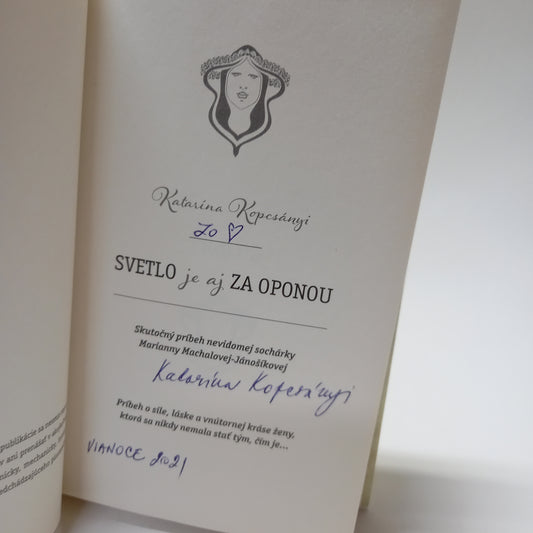 Katarína Kopcsányi
zo ♡
SVETLO je aj ZA OPONOU
Skutočný príbeh nevidomej sochárky
Marianny Machalovej-Jánošíkovej
Katarína Kopcsányi
Príbeh o sile, láske a vnútornej kráse ženy,
ktorá sa nikdy nemala stať tým, čím je...
VIANOCE 2021
publikácie sa nesmie
ani prenášať v
mechanicky,